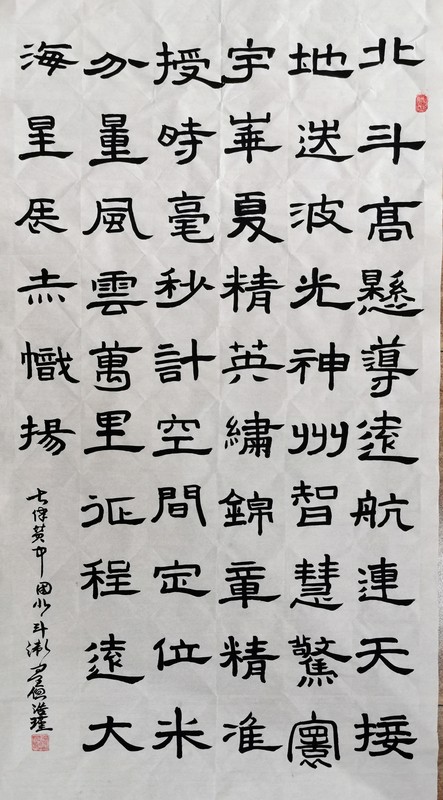 北斗高懸導遠航連天接
地送波光神州智慧驚寰
宇華夏精英繡錦章精准
授時毫秒計空間定位米
分量風雲萬里征程遠大
海星辰赤幟揚
七律贊中國北斗衛星